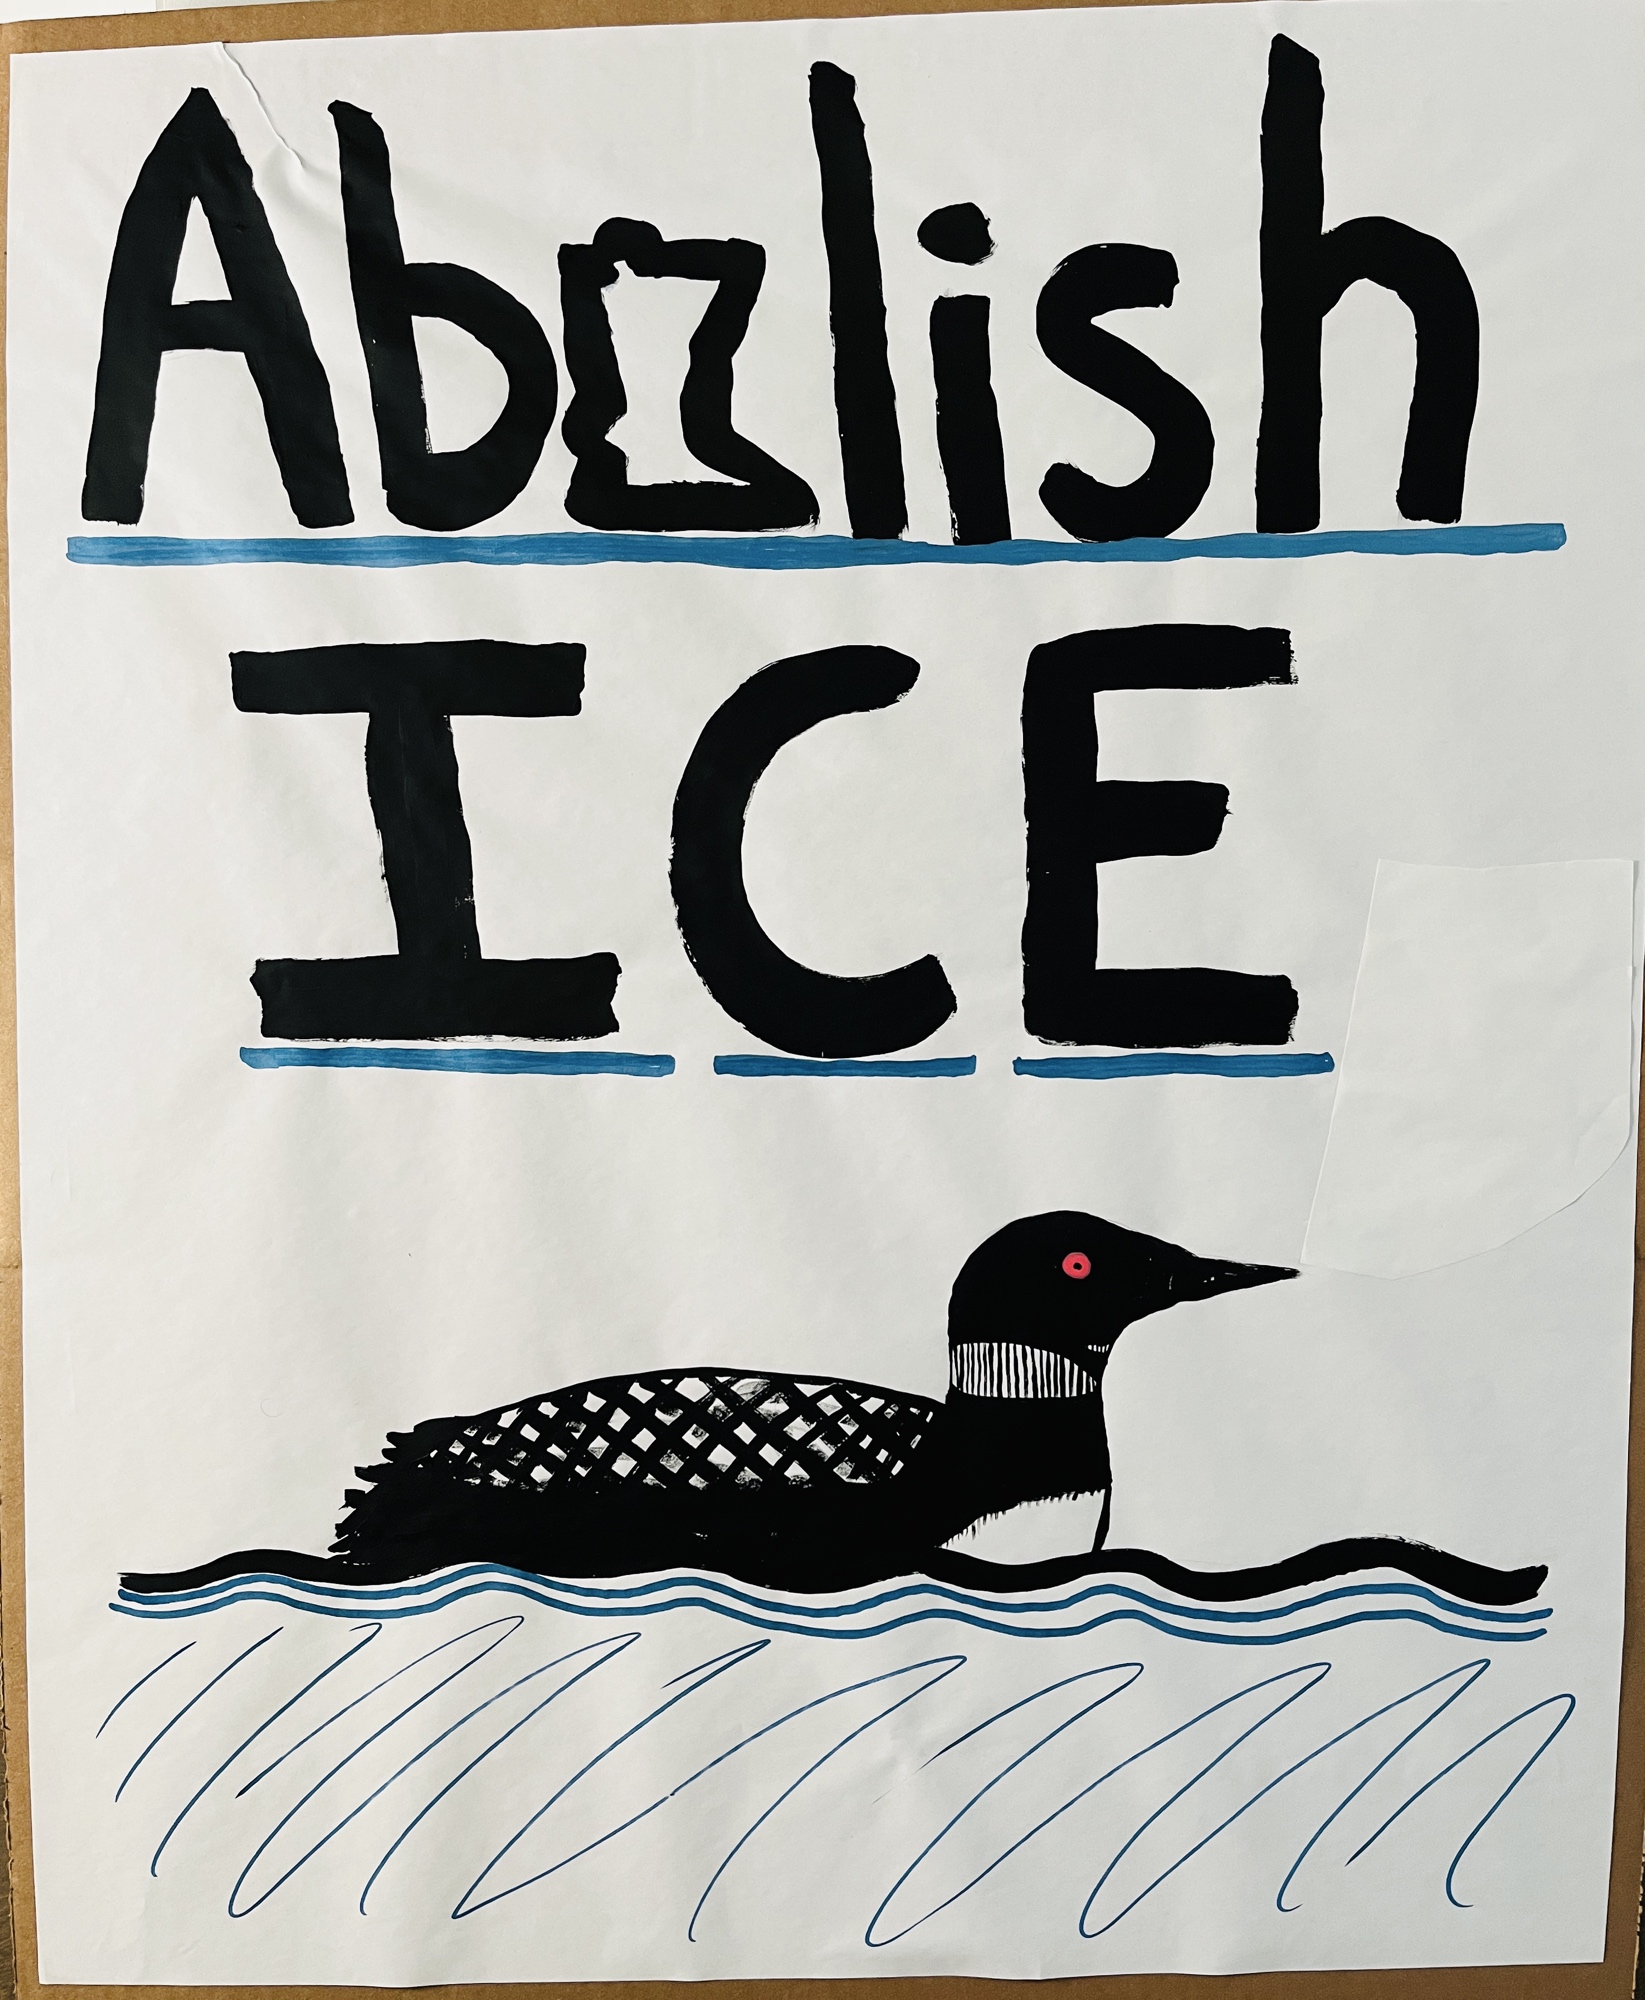 Abolish
ICE